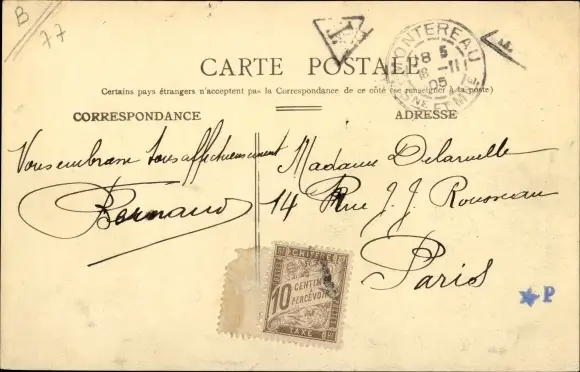 B
77
T
MONTEREAU
18 5
18 -11
05
SNE ET M
CARTE POSTALE
Certains pays étrangers n'acceptent pas la Correspondance de ce côté (se renseigner à la poste)
CORRESPONDANCE
ADRESSE
Vous embrasse tous affectueusement
Bernard
Madame Delaruelle
14 Rue J. J. Rousseau
Paris
CHIFFRE
10 CENTIMES
À
PERCEVOIR
TAXE
P